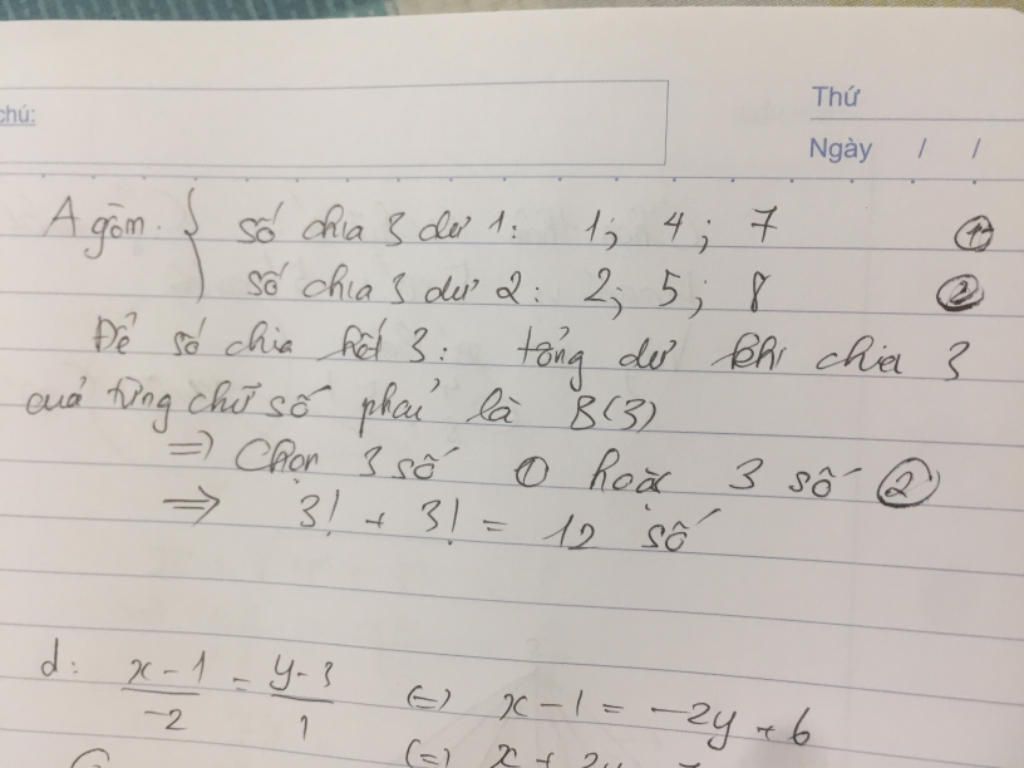 chú:
Thứ
Ngày / /
A gồm. { số chia 3 dư 1: 1; 4; 7 ①
số chia 3 dư 2: 2; 5; 8 ②
Để số chia hết 3: tổng dư khi chia 3
cuả từng chữ số phải là B(3)
=> Chọn 3 số ① hoặc 3 số ②
=> 3! + 3! = 12 số
d: x-1/-2 = y-3/1 (=) x-1 = -2y+6
(=) x+2y